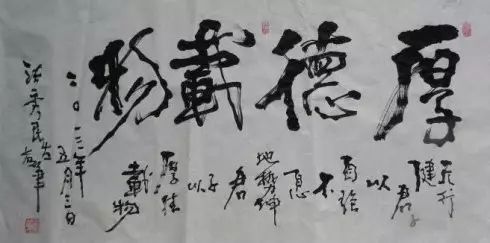 厚德載物
天行
健君子
以
自強
不息
地勢坤
君
子以
厚德
載物
二〇一三年
五月三日